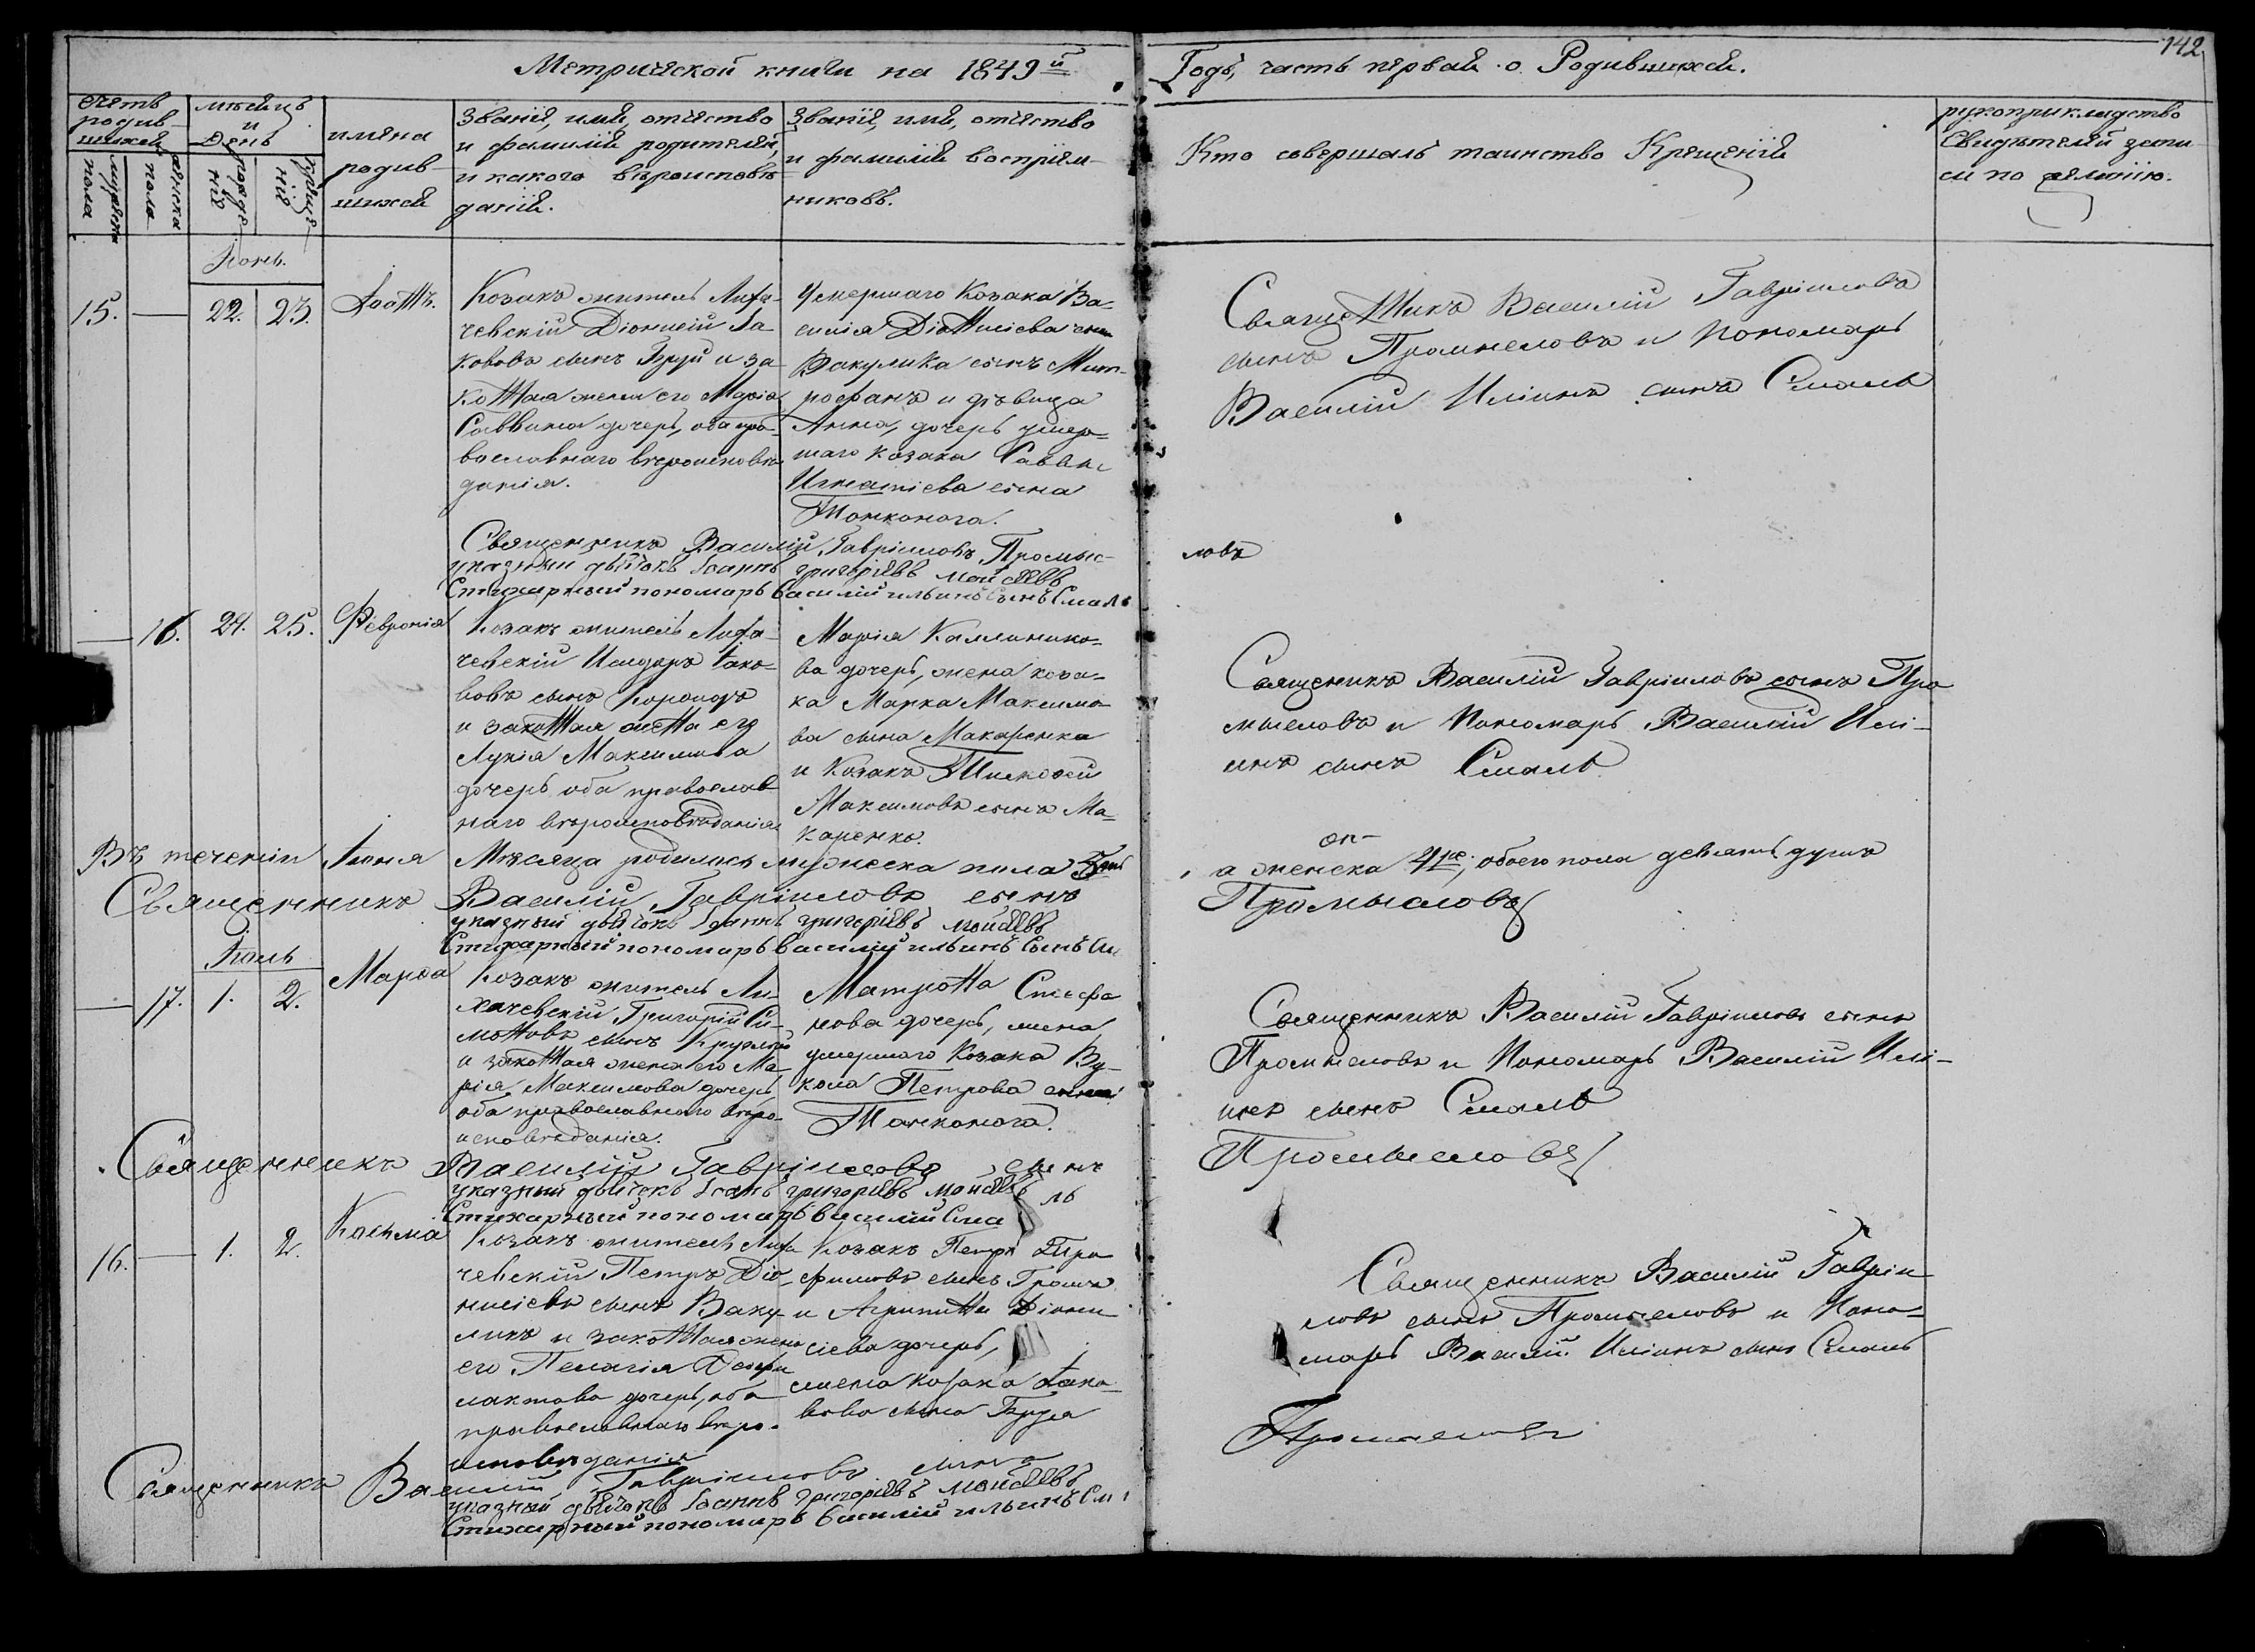 142
Метрической книги на 1849й
Годъ, часть первая о Родившихся.
счетъ родив-
шихся
мужеска пола
женска пола
мѣсяцъ
и
День
рожденіе
крещеніе
имена
родив-
шихся
Званіе, имя, отчество
и фамилія родителей,
и какого вѣроисповѣ
данія.
Званіе, имя, отчество
и фамилія воспріем-
никовъ.
Кто совершалъ таинство Крещенія
рукоприкладство
Свидѣтелей запи
си по желанію.
Іюнь.
15. — 22. 23.
Козакъ житель Лиха-
чевскій Діонисій Іа
кововъ сынъ Груй и за
конная жена его Марія
Саввина дочерь, оба пра-
вославнаго вѣроисповѣ
данія.
Умершаго Козака Ва-
силія Діонисіева сына
Вакулика сынъ Мит-
рофанъ и дѣвица
Анна, дочерь умер-
шаго козака Саввы
Игнатіева сына
Тонконога.
Священникъ Василій Гавріиловъ
сынъ Промысловъ и Пономарь
Василій Иліинъ сынъ Смаль
Священникъ Василій Гавріиловъ Промыс-
ловъ
указный дьячокъ Іоаннъ григоріевъ мойсеевъ
Стихарный пономарь василій ильинъ Сынъ Смаль
— 16. 24. 25. Февронія
Козакъ житель Лиха-
чевскій Исидоръ Іако-
вовъ сынъ
и законная жена его
Лукія Максимова
дочерь оба православ
наго вѣроисповѣданія
Марія Каллинико-
ва дочерь, жена коза-
ка Марка Максимо
ва сына Макаренка
и Козакъ Тимофей
Максимовъ сынъ Ма-
каренко.
Священикъ Василій Гавріиловъ сынъ Про
мысловъ и Пономарь Василій Илі-
инъ сынъ Смаль
Въ теченіи Іюня Мѣсяца родилось мужеска пола
а женска 4ре, обоего пола девять душъ
Священникъ Василій Гавріиловъ сынъ
Промысловъ
указный дьячокъ Іоаннъ григоріевъ мойсеевъ
Стихарный пономарь василій ильинъ Сынъ См
Іюль
— 17. 1. 2. Марѳа
Козакъ житель Ли-
хачевскій Григорій Си-
моновъ сынъ
и законная жена его Ма-
рія Максимова дочерь
оба православнаго вѣро-
исповѣданія.
Матрона Стефа
нова дочерь, жена
умершаго Козака Ву-
кола Петрова сына
Тонконога.
Священникъ Василій Гавріиловъ сынъ
Промысловъ и Пономарь Василій Илі-
инъ сынъ Смаль
Священникъ Василій Гавріиловъ сынъ
Промысловъ
указный дьячокъ Іоаннъ григоріевъ мойсеевъ
Стихарный пономарь василій Смаль
16. — 1. 2. Косьма
Козакъ житель Лиха
чевскій Петръ Діо-
нисіевъ сынъ Ваку-
ликъ и законная жена
его Пелагія
дочерь, оба
православнаго вѣро-
исповѣданія
Козакъ Петръ Тро
фимовъ сынъ
и Агрипина Діони
сіева дочерь,
жена Козака Іако-
вова сына Груя
Священникъ Василій Гавріи-
ловъ сынъ Промысловъ и Поно-
марь Василій Иліинъ сынъ Смаль
Священникъ Василій Гавріиловъ сынъ
Промысловъ
указный дьячокъ Іоаннъ григоріевъ мойсеевъ
Стихарный пономарь василій ильинъ См